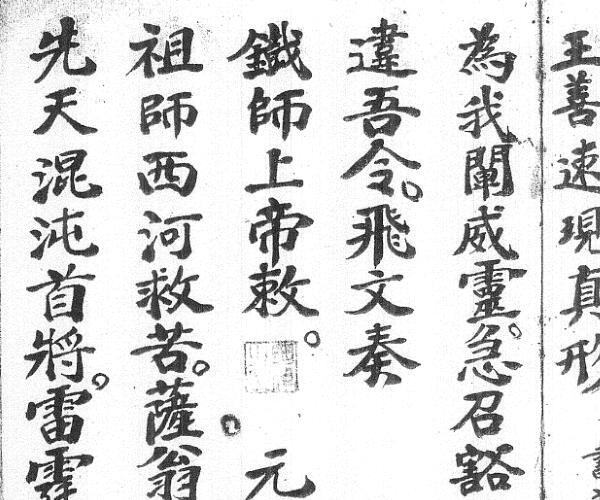 王善速現真形
為我闡威靈。急召豁
違吾令。飛文奏
鐵師上帝敕。元
祖師西河救苦。薩翁
先天混沌首將。雷霆